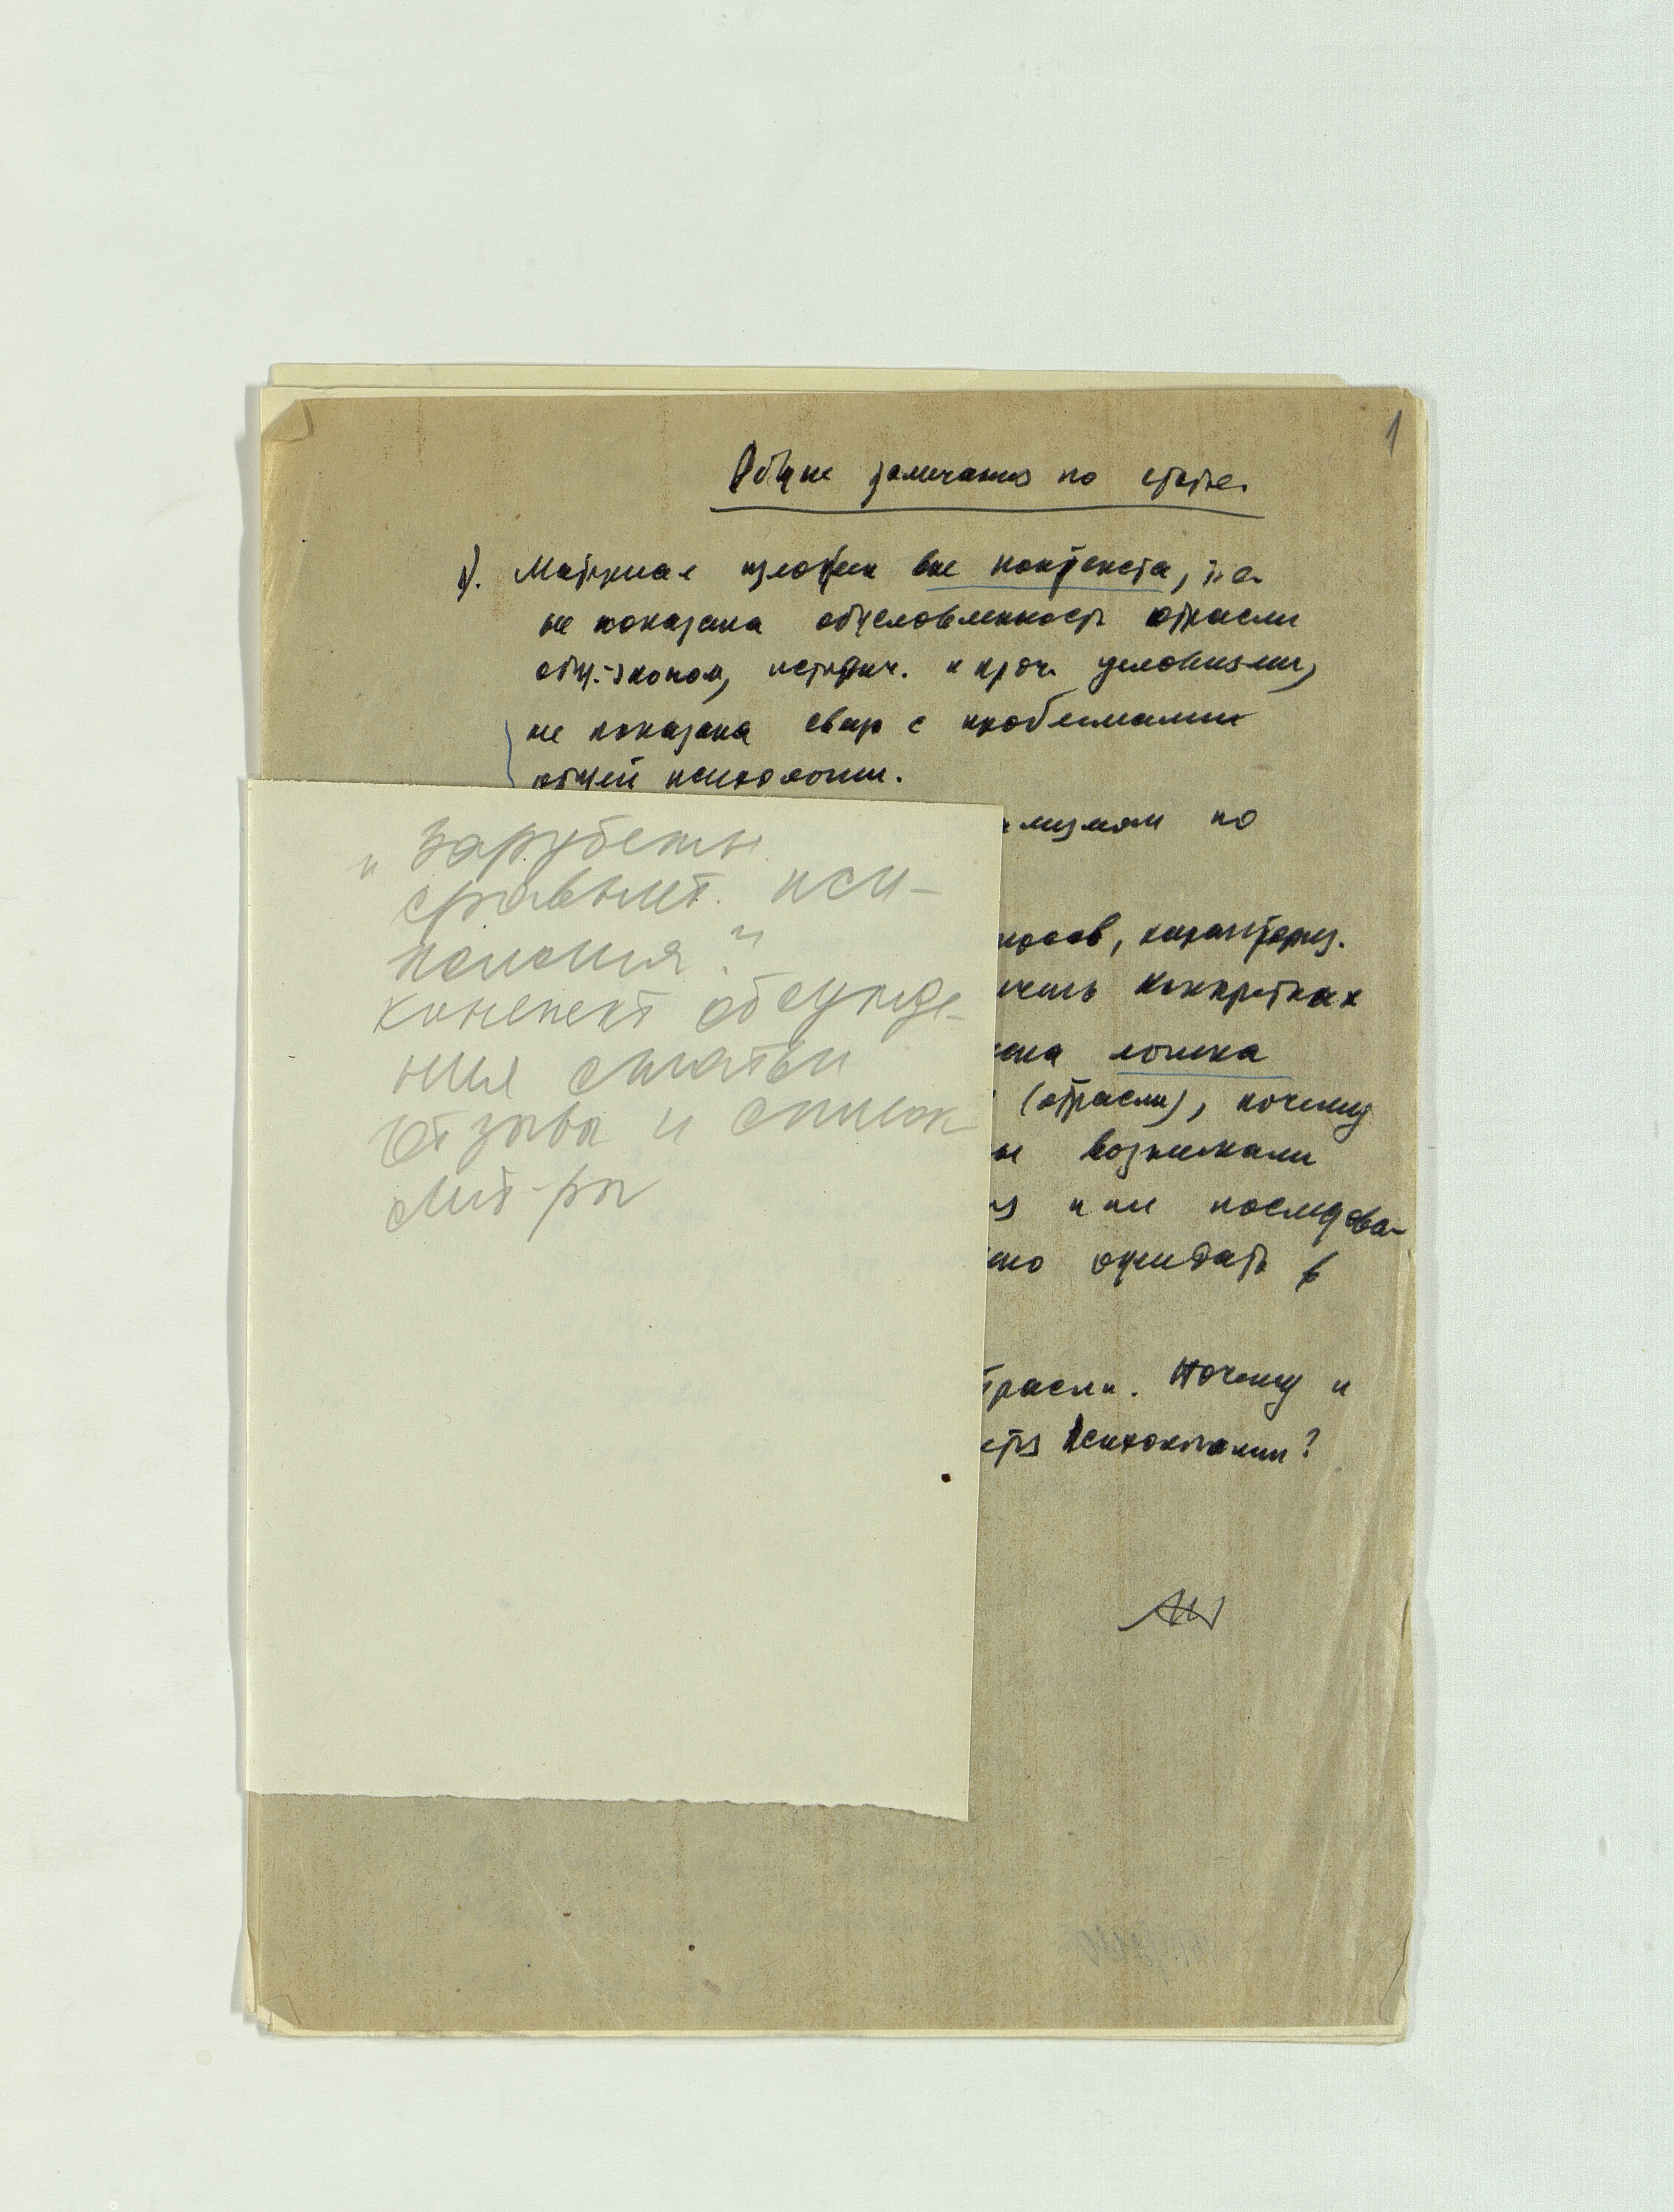 1
Общие замечания по статье.
1). Материал изложен вне контекста, т.е.
не показана обусловленность отрасли
общ.-эконом, историч. и проч. условиями,
не показана связь с проблемами
общей психологии.
по
характериз.
конкретных
логика
(отрасли), почему
возникали
или последова-
ожидать в
Почему и
психологии?
"Зарубежн.
сравнит. пси-
хология"
конспект обсужде-
ния статьи
отзывы и список
лит-ры